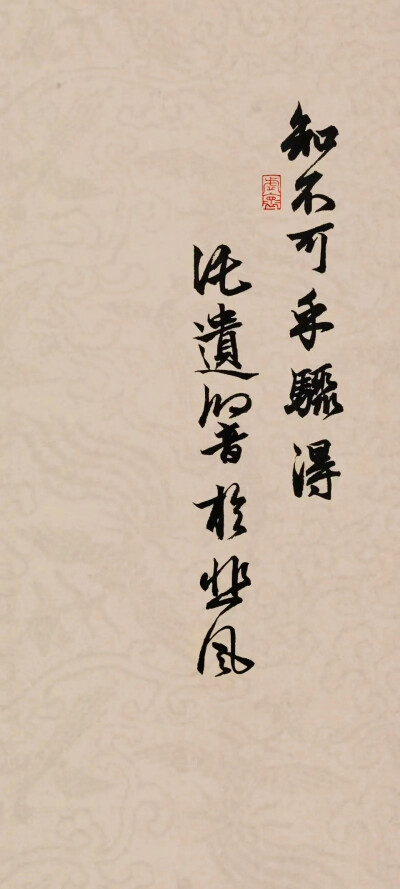 知不可乎驟得
托遺響於悲風